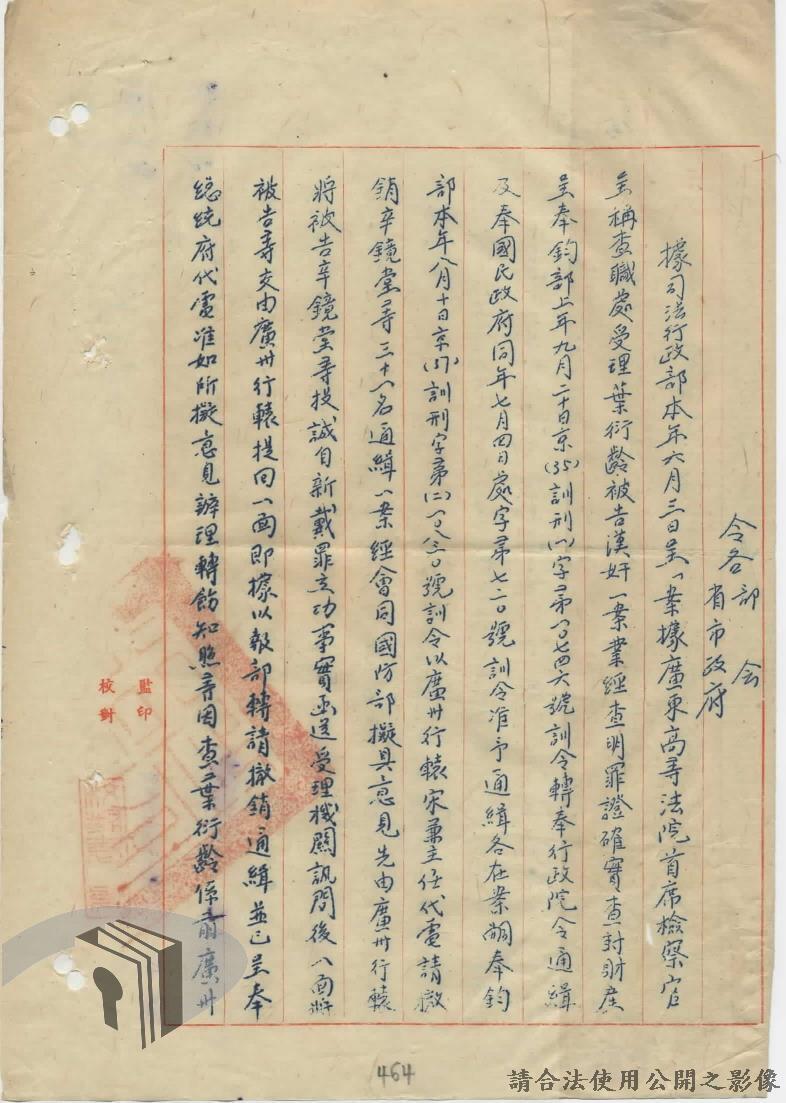 令各部會
省市政府
據司法行政部本年六月三日呈「案據廣東高等法院首席檢察官
呈稱查職處受理葉衍齡被告漢奸一案業經查明罪證確實查封財產
呈奉鈞部上年九月二十日京(35)訓刑(一)字第一〇七四六號訓令轉奉行政院令通緝
及奉國民政府同年七月四日處字第七二〇號訓令准予通緝各在案嗣奉鈞
部本年八月十日京(37)訓刑字第(二)一〇八三〇號訓令以廣州行轅宋兼主任代電請撤
銷辛鏡堂等三十一名通緝一案經會同國防部擬具意見先由廣州行轅
將被告辛鏡堂等投誠自新戴罪立功事實函送受理機關訊問後一面將
被告等交由廣州行轅提回一面即據以報部轉請撤銷通緝並已呈奉
總統府代電准如所擬意見辦理轉飭知照等因查葉衍齡係前廣州
監印
校對
464
請合法使用公開之影像